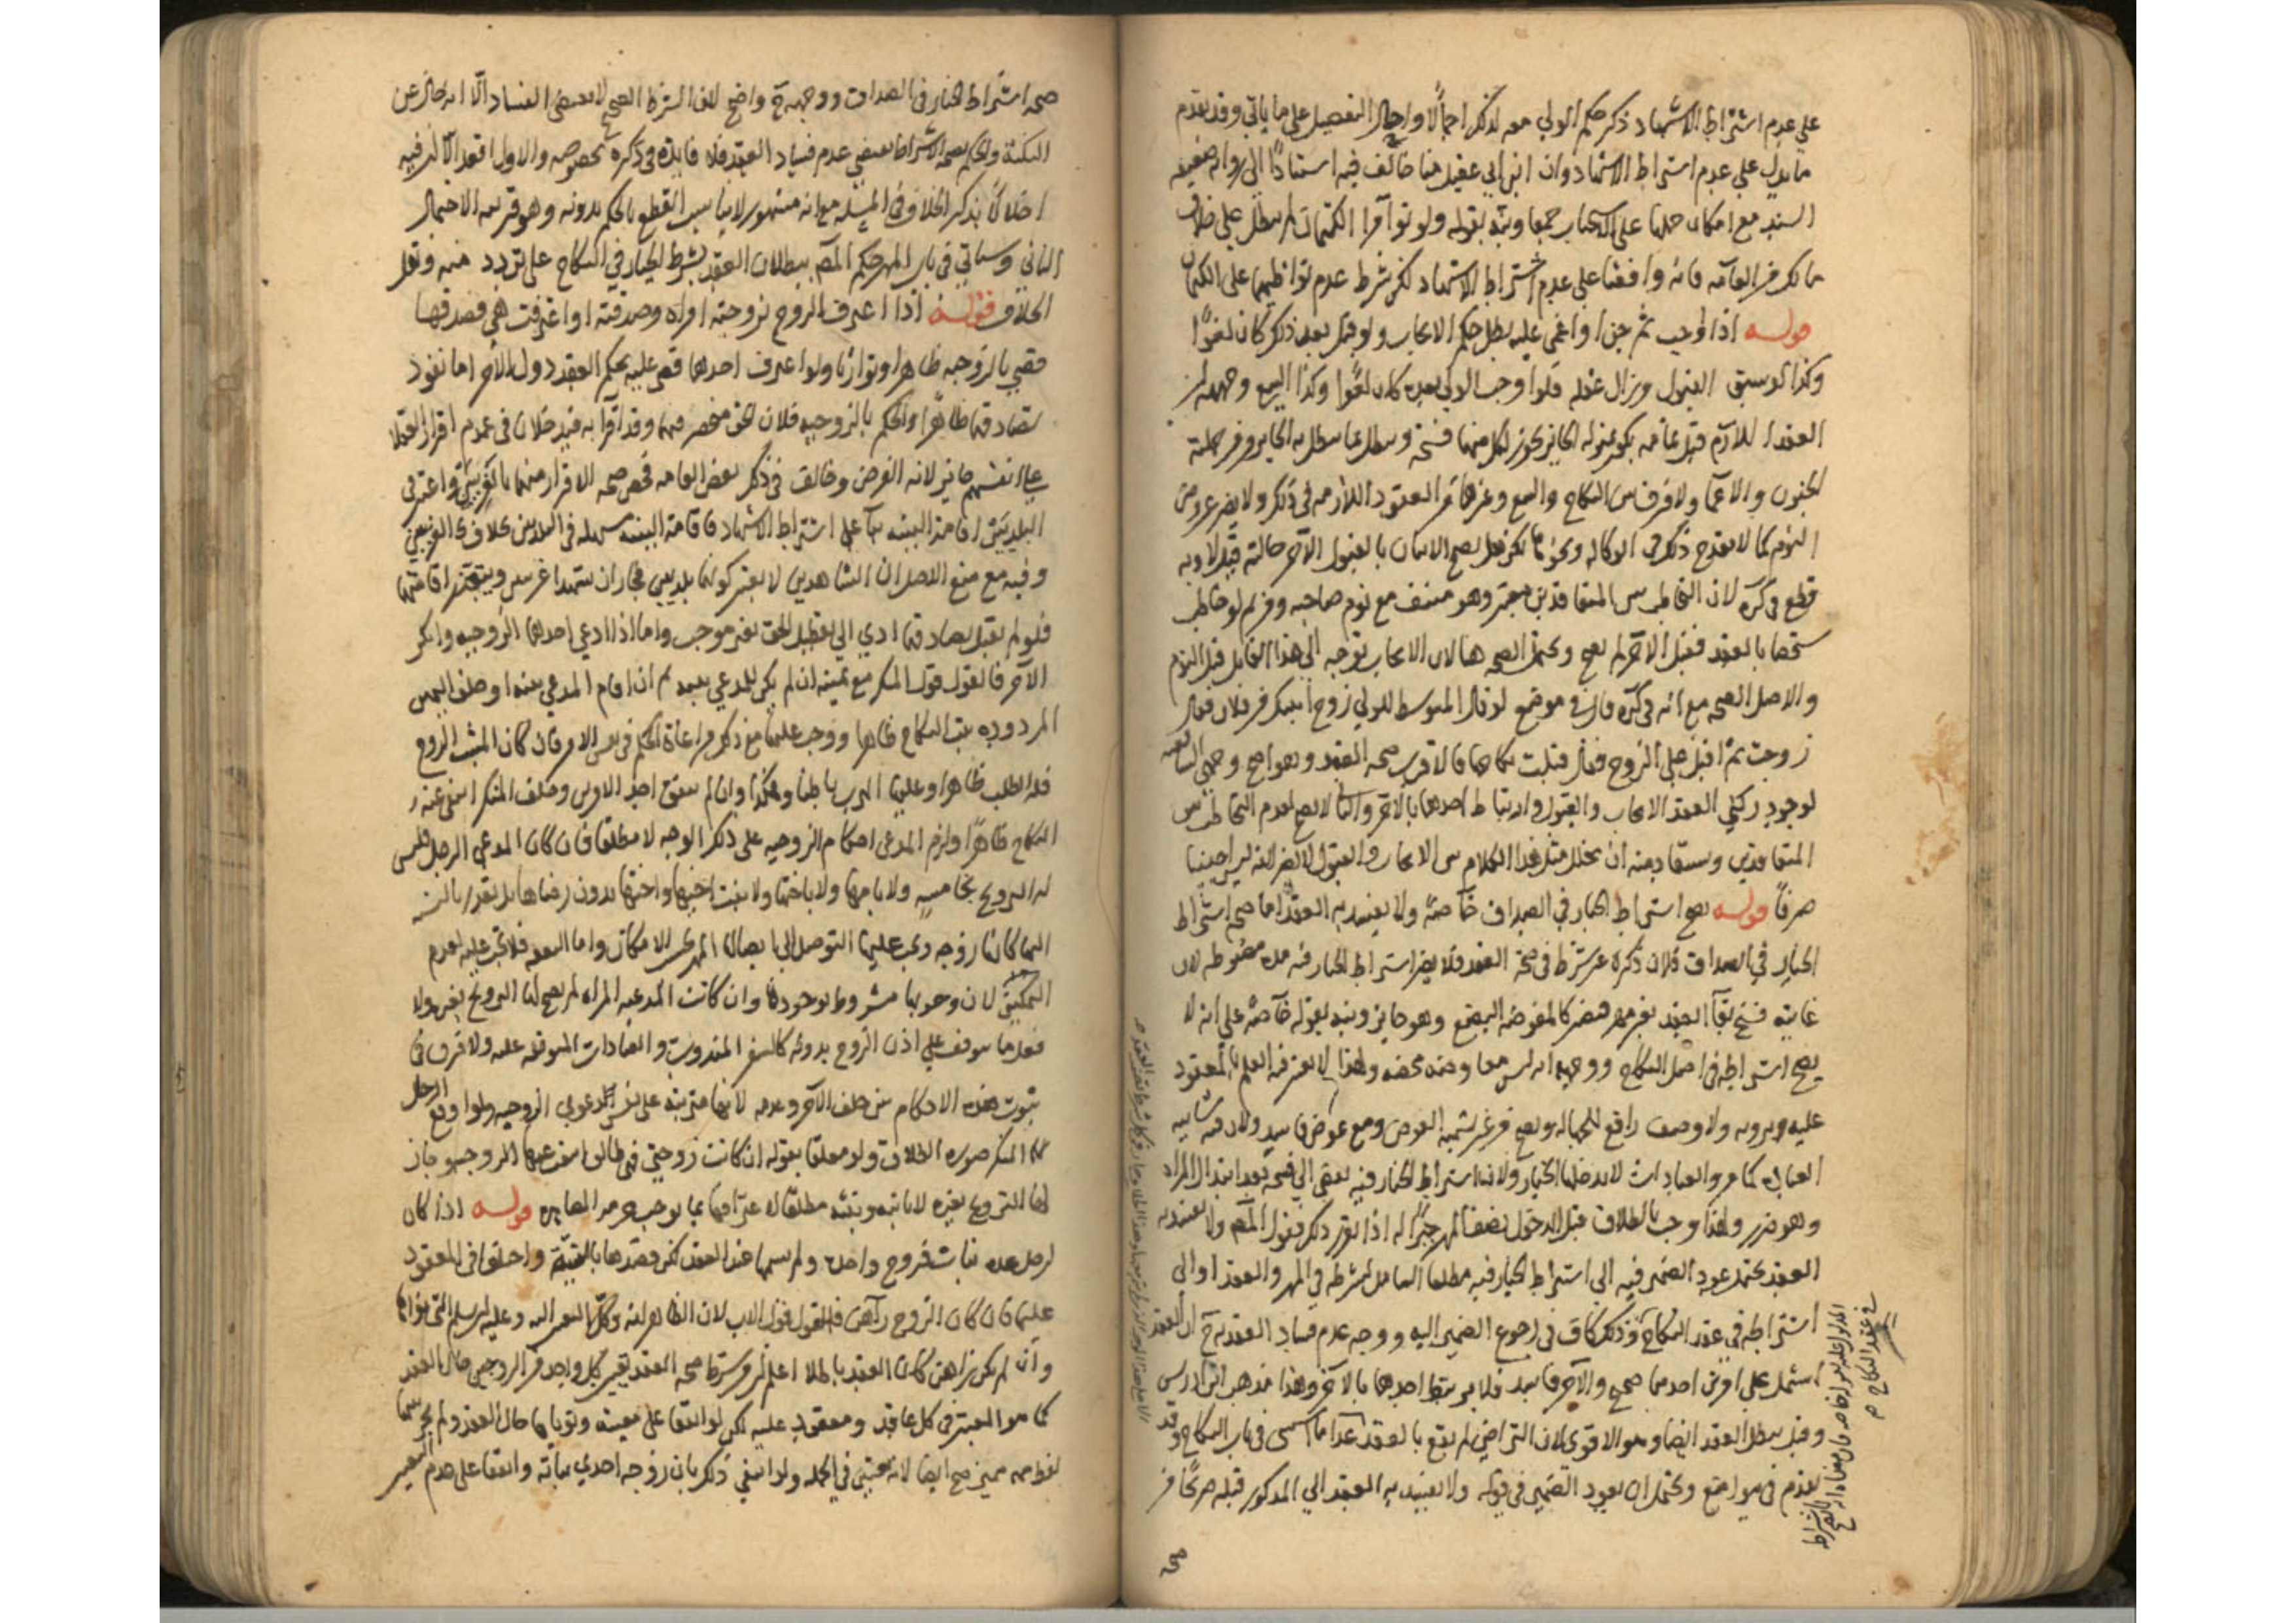 على عدم اشتراط الاشهاد ذكر حكم الولي معه لذلك اجمالا واحال التفصيل على ما ياتي وقد تقدم
ما يدل على عدم اشتراط الاشهاد وان ابن ابي عقيل منا خالف فيه استنادا الى رواية ضعيفة
السند مع امكان حملها على الاستحباب جمعا ونبه بقوله ولو تواقرا الكتمان لم يبطل على خلاف
مالك من العامة فانه وافقنا على عدم اشتراط الاشهاد لكن شرط عدم تواطيهما على الكتمان
قوله اذا اوجب ثم جن او اغمي عليه بطل حكم الايجاب ولو قبل بعد ذلك كان لغوا
وكذا لو سبق القبول وزال عقله فلو اوجب الولي بعده كان لغوا وكذا البيع وجهه ان
العقد اللازم قبل تمامه يكون بمنزلة الجايز يجوز لكل منهما فسخه ويبطل بما يبطل به الجايز ومن جملته
الجنون والاغما ولا فرق بين النكاح والبيع وغيرهما من العقود اللازمة في ذلك ولا يضر عروض
النوم كما لا يقدح ذلك في الوكالة ونحوها لكن هل يصح الاتيان بالقبول الاخر حالته قيل لا وبه
قطع في كره لان التخاطب بين المتعاقدين معتبر وهو منتف مع نوم صاحبه ومن ثم لو خاطب
شخصا بالعقد فقبل الاخر لم يصح ويحتمل الصحة هنا لان الايجاب توجه الى هذا القابل قبل النوم
والاصل الصحة مع انه في كره قال في موضع لو قال المتوسط للولي زوج ابنتك من فلان فقال
زوجت ثم اقبل على الزوج فقال قبلت نكاحها فالاقرب صحة العقد وهو اصح وجهي الشافعية
لوجود ركني العقد الايجاب والقبول وارتباط احدهما بالاخر والثاني لا يصح لعدم التخاطب بين
المتعاقدين ويستفاد منه ان تخلل مثل هذا الكلام بين الايجاب والقبول لا يضر لانه ليس اجنبيا
صرفا قوله يصح اشتراط الخيار في الصداق خاصة ولا يفسد به العقد اما صحة اشتراط
الخيار في الصداق فلان ذكره غير شرط في صحة العقد فلا يضر اشتراط الخيار فيه مدة مضبوطة لان
غايته فسخه بقاء العقد بغير مهر فيصير كالمفوضة البضع وهو جايز ونبه بقوله خاصة على انه لا
يصح اشتراطه في اصل النكاح ووجهه انه ليس معاوضة محضة ولهذا لا يعتبر فيه العلم بالمعقود
عليه برؤية ولا وصف رافع للجهالة ويصح من غير تسمية العوض ومع عوض فاسد ولان فيه شائبة
العبادة كما مر والعبادات لا يدخلها الخيار ولان اشتراط الخيار فيه يفضي الى فسخه بعد ابتذال المراة
وهو ضرر ولهذا وجب بالطلاق قبل الدخول نصف المهر جبرا له اذا تقرر ذلك فقول المص ولا يفسد به
العقد يحتمل عود الضمير فيه الى اشتراط الخيار فيه مطلقا الشامل لشرطه في المهر والعقد او الى
اشتراطه في عقد النكاح وذلك كاف في رجوع الضمير اليه ووجه عدم فساد العقد به ح ان العقد
اشتمل على امرين احدهما صحيح والاخر فاسد فلا يرتبط احدهما بالاخر وهذا مذهب ابن ادريس
وقيل يبطل العقد ايضا وهو الاقوى لان التراضي لم يقع بالعقد في باب النكاح وقد
تقدم في مواضع ويحتمل ان يعود الضمير في قوله ولا يفسد به العقد الى المذكور قبله صريحا من
صحة
في عقد النكاح
صحة اشتراط الخيار في الصداق ووجهه ح واضح لان الشرط الصحيح لا يقتضي الفساد الا انه خال عن
النكتة والحكم بصحة الاشتراط يقتضي عدم فساد العقد فلا فايدة في ذكره بخصوصه والاول اقعد الا ان فيه
اخلالا بذكر الخلاف في المسئلة مع انه مشهور لا يناسب القطع بالحكم بدونه وهو قرينة الاحتمال
الثاني وسياتي في باب المهر حكم المص ببطلان العقد بشرط الخيار في النكاح على تردد منه ونقل
الخلاف قوله اذا اعترف الزوج بزوجية امراة وصدقته او اعترفت هي فصدقها
قضي بالزوجية ظاهرا وتوارثا ولو اعترف احدهما قضي عليه بحكم العقد دون الاخر اما نفوذ
تصادقهما ظاهرا والحكم بالزوجية فلان الحق منحصر فيهما وقد اقرا به فيدخلان في عموم اقرار العقلا
على انفسهم جايز لانه الفرض وخالف في ذلك بعض العامة فخص صحة الاقرار منهما بالغريبين واعتبر في
البلديين اقامة البينة بناء على اشتراط الاشهاد فاقامة البينة سهلة في البلديين بخلاف الغريبين
وفيه مع منع الاصل ان الشاهدين لا يعتبر كونهما بلديين فجاز ان يشهدا غريبين ويتعذر اقامتهما
فلو لم يقبل تصادقهما ادى الى تعطيل الحق بغير موجب واما اذا ادعى احدهما الزوجية وانكر
الاخر فالقول قول المنكر مع يمينه ان لم يكن للمدعي بينة ثم ان اقام المدعي بينة او حلف اليمين
المردودة ثبت النكاح ظاهرا ووجب عليهما مع ذلك مراعاة الحكم في نفس الامر فان كان المثبت الزوج
فله الطلب ظاهرا وعليها الهرب باطنا وهكذا وان لم يتفق احد الامرين وحلف المنكر انتفى عنه
النكاح ظاهرا ولزم المدعي احكام الزوجية على ذلك الوجه لا مطلقا فان كان المدعي الرجل فليس
له التزويج بخامسة ولا بامها ولا باختها ولا بنت اخيها واختها بدون رضاها بل تقدر بالنسبة
اليها كانها زوجة ويجب عليه التوصل الى ايصالها المهر بحسب الامكان واما النفقة فلا تجب عليه لعدم
التمكين لان وجوبها مشروط بوجودها وان كانت المدعية المراة لم يصح لها التزويج بغيره ولا
فعل ما يتوقف على اذن الزوج بدونه كالسفر المندوب والعبادات المتوقفة عليه ولا فرق في
ثبوت هذه الاحكام بين حلف الاخر وعدمه لانها مترتبة على نفس دعوى الزوجية ولو اوقع الرجل
المنكر صورة الطلاق ولو معلقا بقوله ان كانت زوجتي فهي طالق انتفت عنها الزوجية وجاز
لها التزويج بغيره لا بابيه وبنته مطلقا لاعترافها بما يوجب حرمة المصاهرة قوله اذا كان
لرجل عدة بنات فزوج واحدة ولم يسمها عند العقد لكن قصدها بالنية واختلفا في المعقود
عليها فان كان الزوج رآهن فالقول قول الاب لان الظاهر انه وكل التعيين اليه وعليه ان يسلم التي نواها
وان لم يكن رآهن كان العقد باطلا اعلم ان من شرط صحة العقد تعيين كل واحد من الزوجين حال العقد
كما هو المعتبر في كل عاقد ومعقود عليه لكن لو اتفقا على معينة ونوياها حال العقد ولم يجر بينهما
لفظ مميز صح ايضا لانه تعيين في الجملة ولو انتفى ذلك بان زوجه احدى بناته واتفقا على عدم التعيين